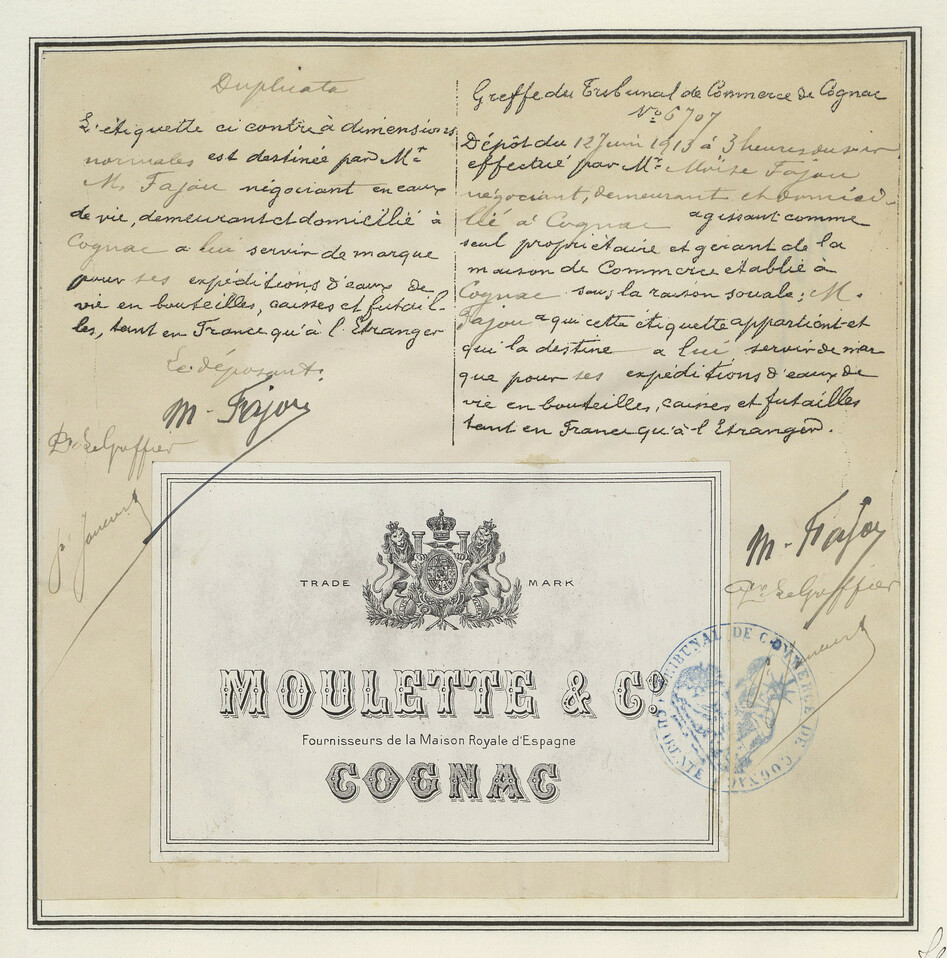 Duplicata
L'étiquette ci contre à dimensions
normales est destinée par Mr
M. Fajou négociant en eaux
de vie, demeurant et domicilié à
Cognac a lui servir de marque
pour ses expéditions d'eaux de
vie en bouteilles, caisses et futail-
les, tant en France qu'à l'Etranger
Le déposant:
M. Fajou
Pr Le Greffier
Greffe du Tribunal de Commerce de Cognac
No 6707
Dépôt du 12 Juin 1913 à 3 heures du soir
effectué par Mr Moïse Fajou
négociant, demeurant et domici-
lié à Cognac agissant comme
seul propriétaire et gérant de la
maison de Commerce établie à
Cognac sous la raison sociale: M.
Fajou a qui cette étiquette appartient et
qui la destine a lui servir de mar
que pour ses expéditions d'eaux de
vie en bouteilles, caisses et futailles
tant en France qu'à l'Etranger.
M. Fajou
Pr Le Greffier
TRADE MARK
MOULETTE & Co.
Fournisseurs de la Maison Royale d'Espagne
COGNAC
TRIBUNAL DE COMMERCE DE COGNAC